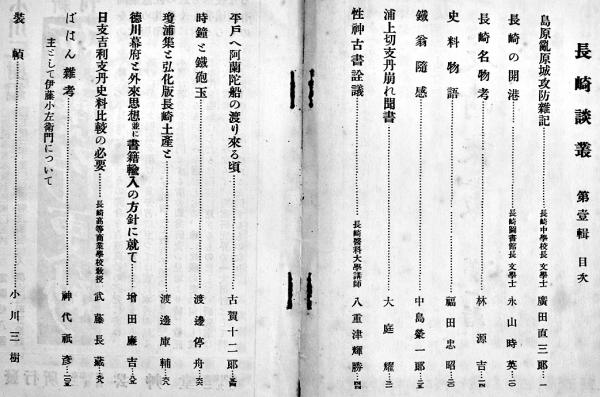 長崎談叢 第壹輯 目次
島原亂原城攻防雜記 長崎中學校長 文學士 廣田直三郎
長崎の開港 長崎圖書館長 文學士 永山時英
長崎名物考 林源吉
史料物語 福田忠昭
鐵翁隨感 中島榮一郎
浦上切支丹崩れ聞書 大庭耀
性神古書詮議 長崎醫科大學講師 八重津輝勝
平戸へ阿蘭陀船の渡り來る頃 古賀十二郎
時鐘と鐵砲玉 渡邊停舟
瓊浦集と弘化版長崎土產と 渡邊庫輔
德川幕府と外來思想並に書籍輸入の方針に就て 增田廉吉
日支吉利支丹史料比較の必要 長崎高等商業學校敎授 武藤長藏
ばはん雜考 神代祇彦
主として伊藤小左衛門について
裝幀 小川三樹